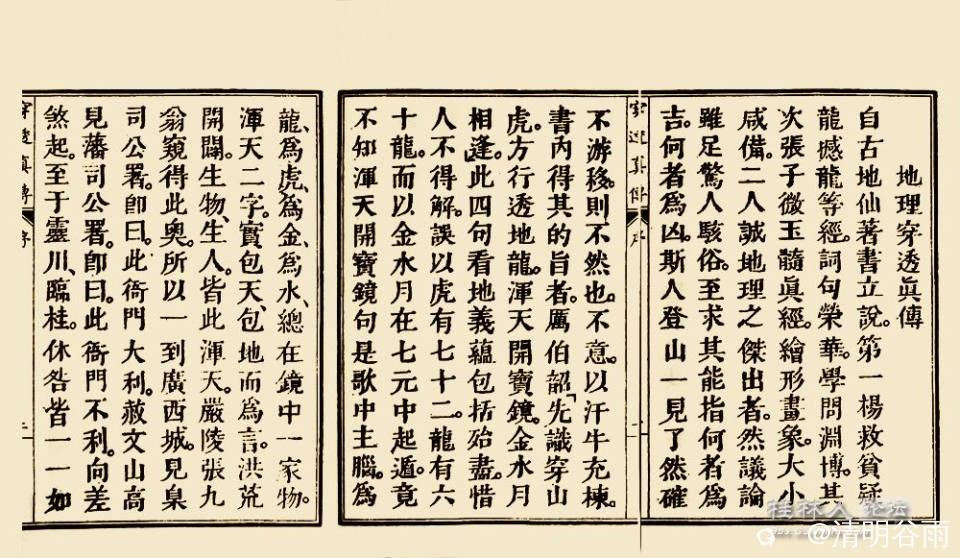 地理穿透眞傳
自古地仙著書立說。第一楊救貧疑
龍撼龍等經。詞句榮華。學問淵博。其
次張子微玉髓眞經。繪形畫象。大小
咸備。二人誠地理之傑出者。然議論
雖足驚人駭俗。至求其能指何者爲
吉。何者爲凶。斯人登山一見了然確
不游移。則不然也。不意。以汗牛充棟
書內得其的旨者。厲伯韶「先識穿山
虎。方行透地龍。渾天開寶鏡。金水月
相逢」。此四句看地義蘊包括殆盡。惜
人不得解。誤以虎有七十二。龍有六
十龍。而以金水月在七元中起遁。竟
不知渾天開寶鏡句是歌中主腦。爲
穿透眞傳
序
龍、爲虎、爲金、爲水、總在鏡中一家物。
渾天二字。實包天、包地而爲言。洪荒
開闢。生物、生人。皆此渾天。嚴陵張九
翁窺得此奧。所以一到廣西城。見臬
司公署。卽曰。此衙門大利。赦文山高
見藩司公署。卽曰。此衙門不利。向差
煞起。至于靈川、臨桂。休咎皆一一如
穿透眞傳
序
二
桂林人论坛
@清明谷雨